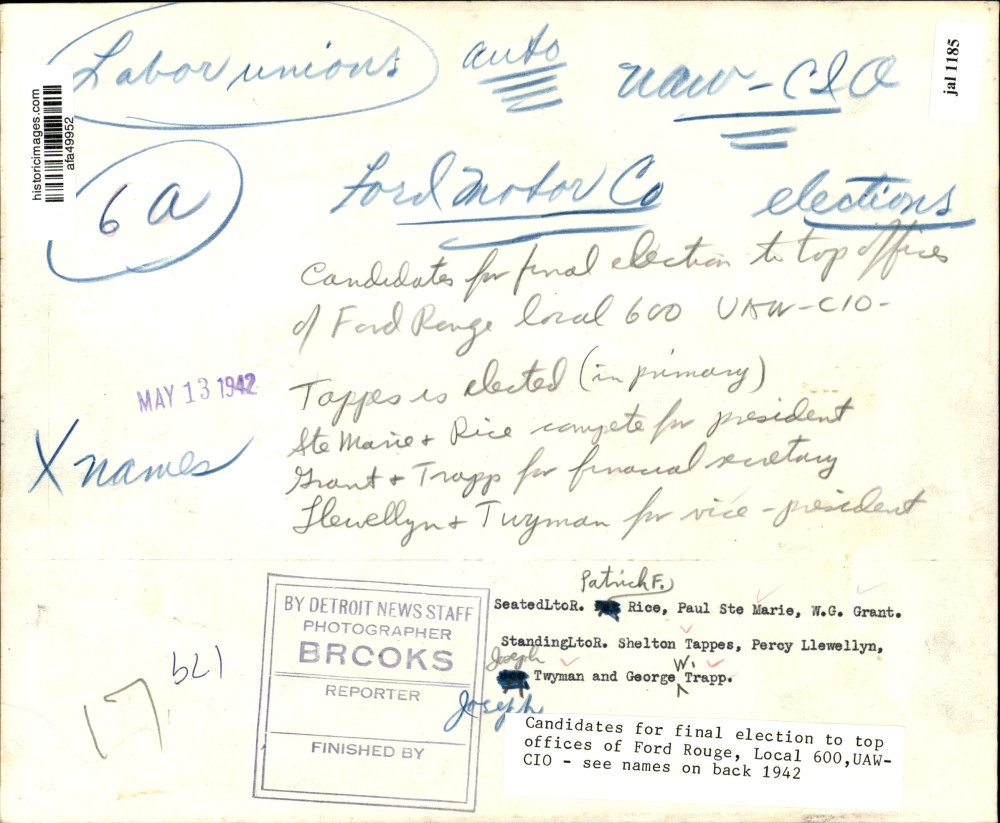 Labor unions auto UAW-CIO
jal 1185
historicimages.com
afa49952
6a
Ford Motor Co elections
Candidates for final election to top offices
of Ford Rouge local 600 UAW-CIO-
MAY 13 1942
Tappes is elected (in primary)
Ste Marie + Rice compete for president
X names
Grant + Trapp for financial secretary
Llewellyn + Twyman for vice-president
Patrick F.
SeatedLtoR. Rice, Paul Ste Marie, W.G. Grant.
StandingLtoR. Shelton Tappes, Percy Llewellyn,
Joseph W.
Twyman and George Trapp.
Joseph
BY DETROIT NEWS STAFF
PHOTOGRAPHER
BROOKS
REPORTER
FINISHED BY
17
Candidates for final election to top
offices of Ford Rouge, Local 600,UAW-
CIO - see names on back 1942